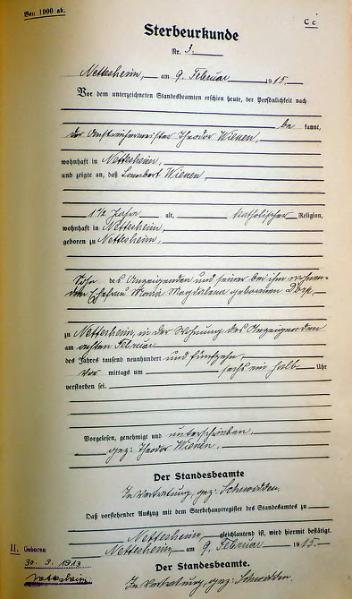 Bon 1900 ab.
C c
Sterbeurkunde
Nr. 3.
Nettersheim, am 9. Februar 1915.
Vor dem unterzeichneten Standesbeamten erschien heute, der Persönlichkeit nach
be kannt,
der Theodor Wienen,
wohnhaft in Nettersheim,
und zeigte an, daß Lambert Wienen,
1 1/2 Jahre alt, katholischer Religion,
wohnhaft in Nettersheim,
geboren zu Nettersheim,
Sohn des Anzeigenden und seiner bei ihm wohnen-
den Ehefrau Maria Magdalena geborenen
zu Nettersheim, in der Wohnung des Anzeigenden
am achten Februar
des Jahres tausend neunhundert und fünfzehn,
vor mittags um sechs ein halb Uhr
verstorben sei.
Vorgelesen, genehmigt und unterschrieben,
gez: Theodor Wienen.
Der Standesbeamte
In Vertretung, gez: Schwedden.
Daß vorstehender Auszug mit dem Sterbehauptregister des Standesamtes zu
Nettersheim, gleichlautend ist, wird hiermit bestätigt.
Nettersheim, am 9. Februar 1915.
Der Standesbeamte.
In Vertretung, gez: Schwedden.
II. Geboren
30. 9. 1913
Nettersheim